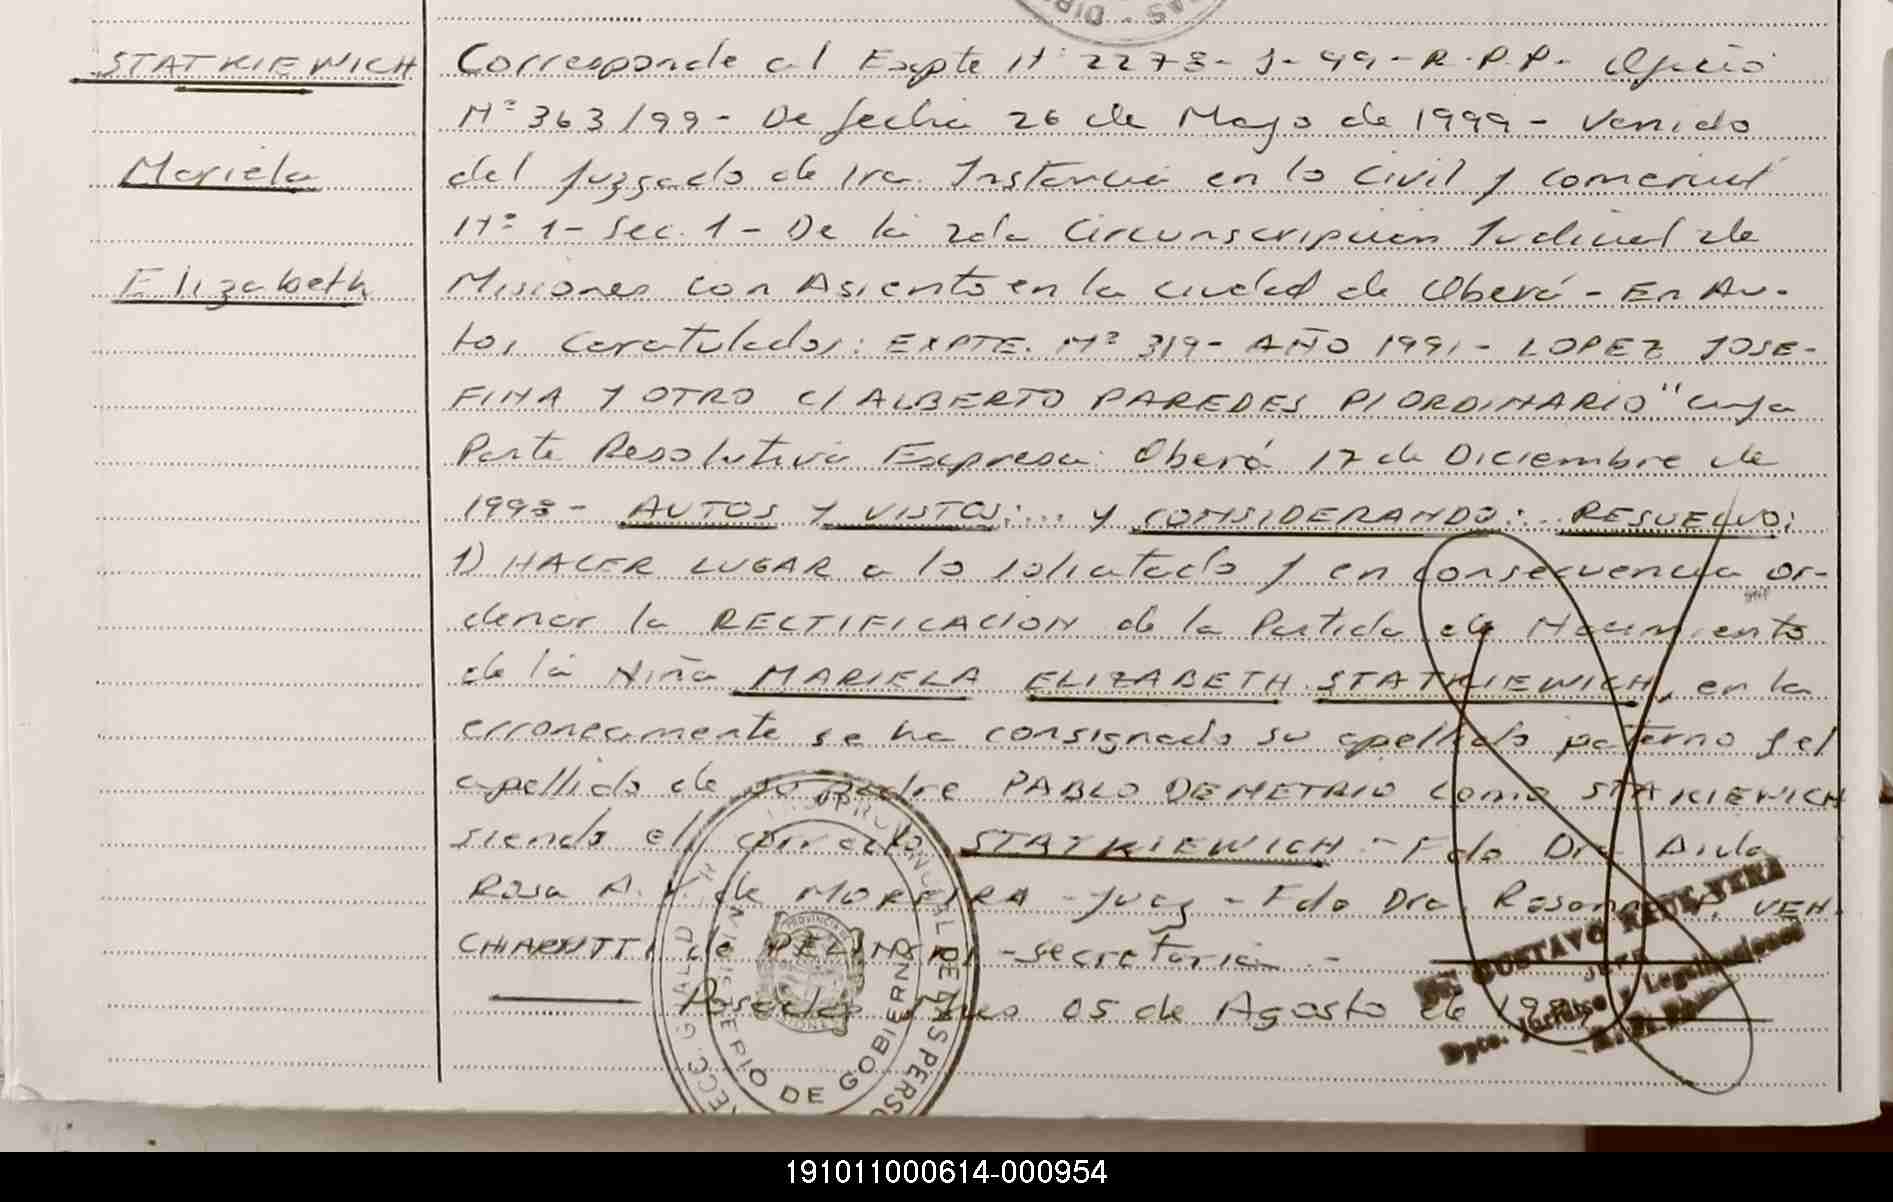 STATKIEWICH
Mariela
Elizabeth
Corresponde al Expte Nº 2278- J- 99 - R.P.P.- Oficio
Nº 363/99 - De fecha 26 de Mayo de 1999 - Venido
del Juzgado de 1ra. Instancia en lo Civil y comercial
Nº 1 - Sec. 1 - De la 2da Circunscripcion Judicial de
Misiones con Asiento en la ciudad de Oberá - En Au-
tos Caratulados: EXPTE. Nº 319- AÑO 1991- LOPEZ JOSE-
FINA Y OTRO C/ ALBERTO PAREDES P/ORDINARIO" cuya
Parte Resolutiva Expresa: Oberá 17 de Diciembre de
1998- AUTOS Y VISTOS:... y CONSIDERANDO:.. RESUELVO:
1) HACER LUGAR a lo solicitado y en consecuencia or-
denar la RECTIFICACION de la Partida de Nacimiento
de la Niña MARIELA ELIZABETH STATKIEWICH, en la
erroneamente se ha consignado su apellido paterno y el
apellido de su padre PABLO DEMETRIO como STAKIEWICH
siendo el correcto STATKIEWICH - Fdo Dra Aida
Rosa A. de MOREIRA - Juez - Fdo Dra. VEN.
CHIARUTTI de - Secretaria -
Posadas 05 de Agosto de
DE GOBIERNO
GUSTAVO
JEFE
Dpto. y Legalizaciones
191011000614-000954